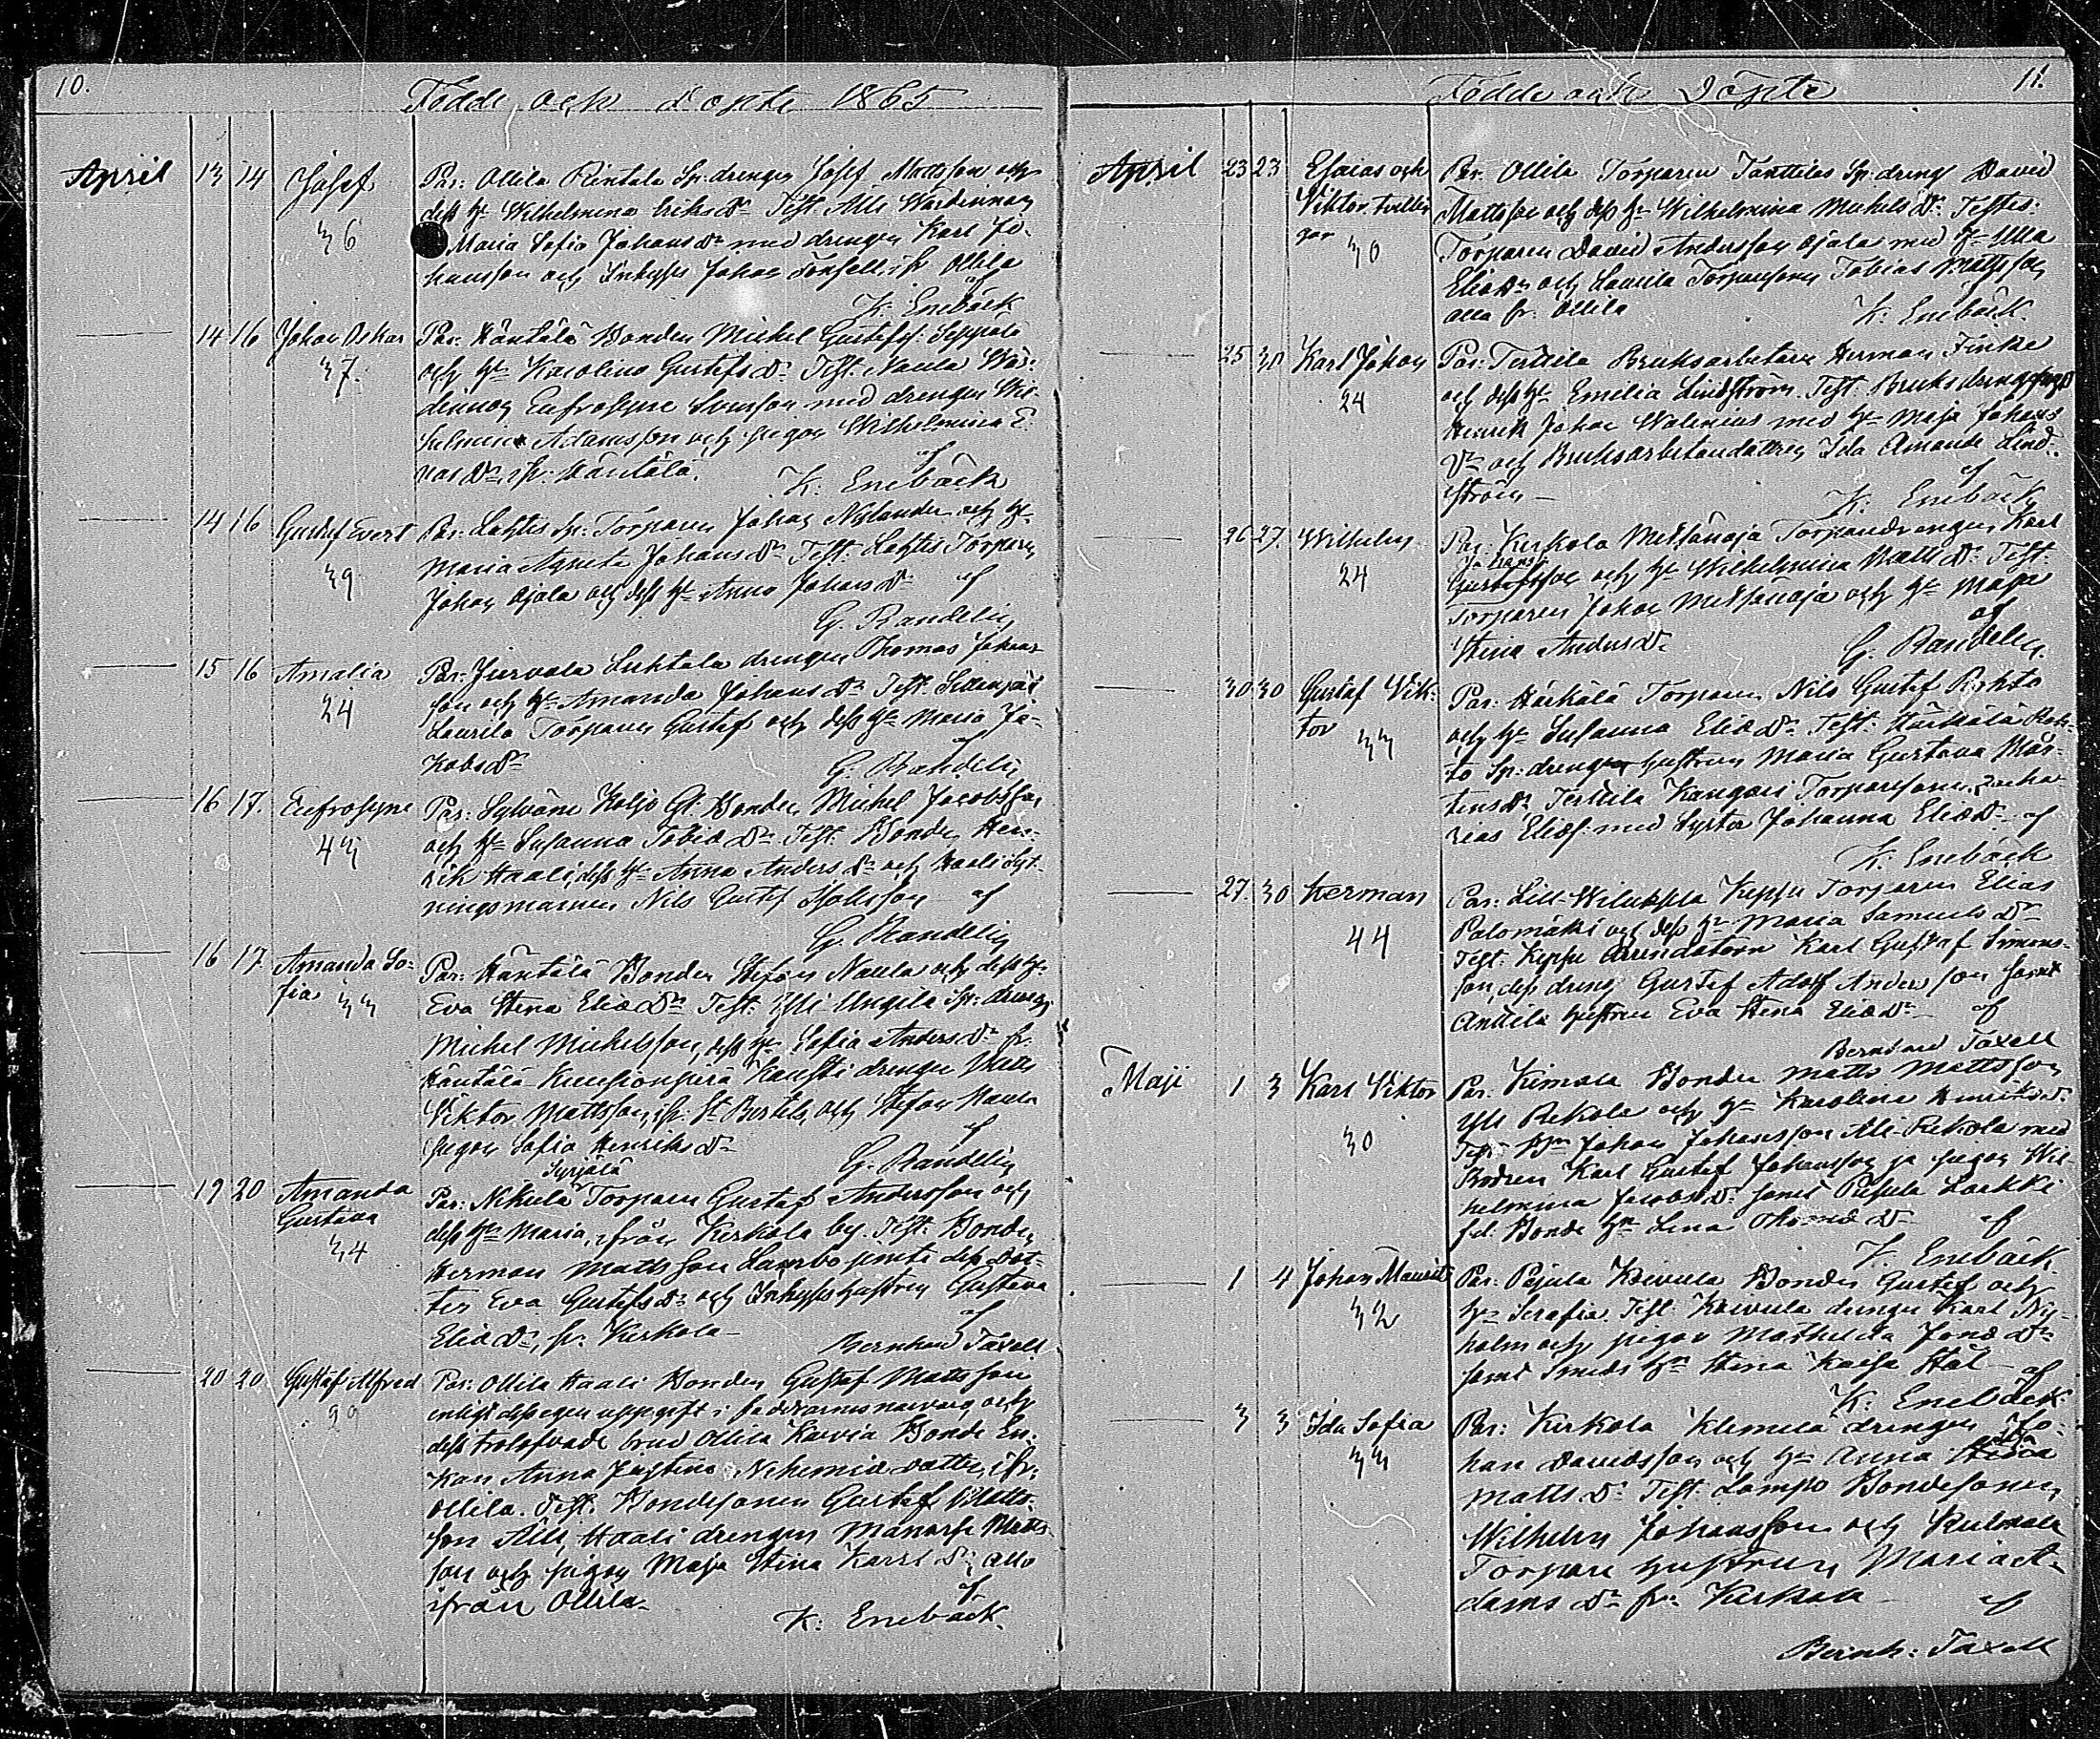 10.
Födde och Döpte 1865
April 13 14 Josef Par: Ollila Rintala Sp: drengen Josef Mattsson och
dess h:u Wilhelmina Eriks Dr. Test. Alli Wärdinnan
36 Maria Sofia Johans Dr med drengen Karl Jo-
hansson och Inhyses Johan Tonfell, ifr Ollila
af
K: Enebäck
14 16 Johan Oskar Par: Häntälä Bonden Michel Gustafss: Seppälä
37. och h:u Karolina Gustafs Dr. Test: Naula Wär-
dinnan Eufrosyne Svensson med drengen Wil-
helmina Adamsson och pigan Wilhelmina E-
ras Dr, ifr: Häntälä. af
K: Enebäck
14 16 Gustaf Evert Par: Lahtis Sp: Torparen Johan Nylander och h:u
39 Maria Agneta Johans Dr Test: Lahtis Torparen
Johan Ojala och dess h:u Anna Johans Dr af
G. Randelin
15 16 Amalia Par: Jurvala Luhtala drengen Thomas Johans-
24 son och h:u Amanda Johans Dr Test.
Laurila Torparen Gustaf och dess h:u Maria Ja-
kobs Dr af
G. Randelin
16 17. Eufrosyne Par: Sylvänä Koljo Gl: Bonden Michel Jacobsson
43 och h:u Susanna Tobiæ Dr. Test. Bonden Hen-
rik Haali, dess h:u Anna Anders Dr och Haali Syt-
ningsmannen Nils Gustaf af
G. Randelin
16 17 Amanda So- Par: Häntälä Bonden Stefan Naula och dess h:u
fia 33 Eva Stina Eliæ Dr Test: Yli Ungila Sp: dreng
Michel Michelsson, dess h:u Sofia Anders Dr fr.
Häntälä Kausti drengen Matts
Viktor Mattsson, ifr: St Bertils, och Stefan Naula
pigan Sofia Henriks Dr af
G. Randelin
Syrjälä
19 20 Amanda Par: Nikula Torparen Gustaf Andersson och
Gustava dess h:u Maria, ifrån Kerkola by. Test: Bonden
34 Herman Mattsson Lambo jemte dess Dot-
ter Eva Gustafs Dr och Inhyses hustrun Gustava
Eliæ Dr, fr. Kerkola – af
Bernhard Taxell
20 20. Gustaf Alfred Par: Ollila Haali Bonden Gustaf Mattsson
29 enligt dess egen uppgift i faddrarnes närvaro, och
dess trolofvade brud Ollila Karvia Bonde En-
kan Anna Justina Nehemiæ dotter, ifr:
Ollila. Test. Bondesonen Gustaf Matts-
son Alli, Haali drengen Manasse Matts-
son och pigan Maja Stina Karls Dr; alla
ifrån Ollila – af
K: Enebäck.
11.
Födde och Döpte
April 23 23 Esaias och Par. Ollila Torparen Tanttilas Sp: dreng David
Viktor. tvillin- Mattsson och dess h:u Wilhelmina Michels Dr. Testes:
gar 30 Torparen David Andersson Ojala med h:u Ulla
Eliæ Dr och Laurila Torparesonen Tobias Mattsson
alla fr. Ollila K: Enebäck.
25 30 Karl Johan Par: Terttila Bruksarbetaren Herman Finke
24 och dess h:u Emelia Lindström. Test. Bruksdrengen
Henrik Johan Walenius med h:u Maja Johans
Dr och Bruksarbetaredottren Ida Amanda Lind-
ström – af
K: Enebäck
26 27. Wilhelm Par: Kerkola Metsänoja Torparedrengen Karl
Johans
24 Gustafsson och h:u Wilhelmina Matts Dr. Test.
Torparen Johan Metsänoja och h:u Maja
Stina Anders Dr af
G. Randelin.
30 30 Gustaf Vik- Par: Härkälä Torparen Nils Gustaf Rohto
tor 33 och h:u Susanna Eliæ Dr. Test: Härkälä Roh-
to Sp: drengen hustrun Maria Gustava Mår-
tens Dr, Terttila Kangari Torparesonen Zacha-
rias Eliæs: med Syster Johanna Eliæ Dr – af
K: Enebäck
27. 30 Herman Par: Lill-Wiluksela Keppu Torparen Elias
44 Palomäki och dess h:u Maria Samuels Dr
Test: Keppu Arrendatorn Karl Gustaf Simons-
son, dess dreng Gustaf Adolf Andersson samt
Anttila hustrun Eva Stina Eliæ Dr – af
Bernhard Taxell
Maji 1 3 Karl Viktor Par. Kimala Bonden Matts Mattsson
30 Yli Rekola och h:u Karolina Henriks Dr.
Test: B:n Johan Johansson Ali-Rekola med
Brodren Karl Gustaf Johansson, ja pigan Wil-
helmina Jacobs Dr samt Pusula Laokki
fd. Bonde h:n Lena Thomæ Dr – af
K. Enebäck
1 4 Johan Maurits Par: Pajula Kaivula Bonden Gustaf och
32 h:u Serafia. Test: Kaivula drengen Karl Ny-
holm och pigan Mathilda Jonæ Dr
samt Smeds h:n Stina Kaisa Stål – af
K. Enebäck
3 3 Ida Sofia Par: Kerkola Klemelä drengen Jo-
33 han Davidsson och h:u Anna Stina
Matts Dr. Test. Lampo Bondesonen
Wilhelm Johansson och Kulmala
Torpare hustrun Maria A-
dams Dr fr: Kerkola – af
Bernh: Taxell